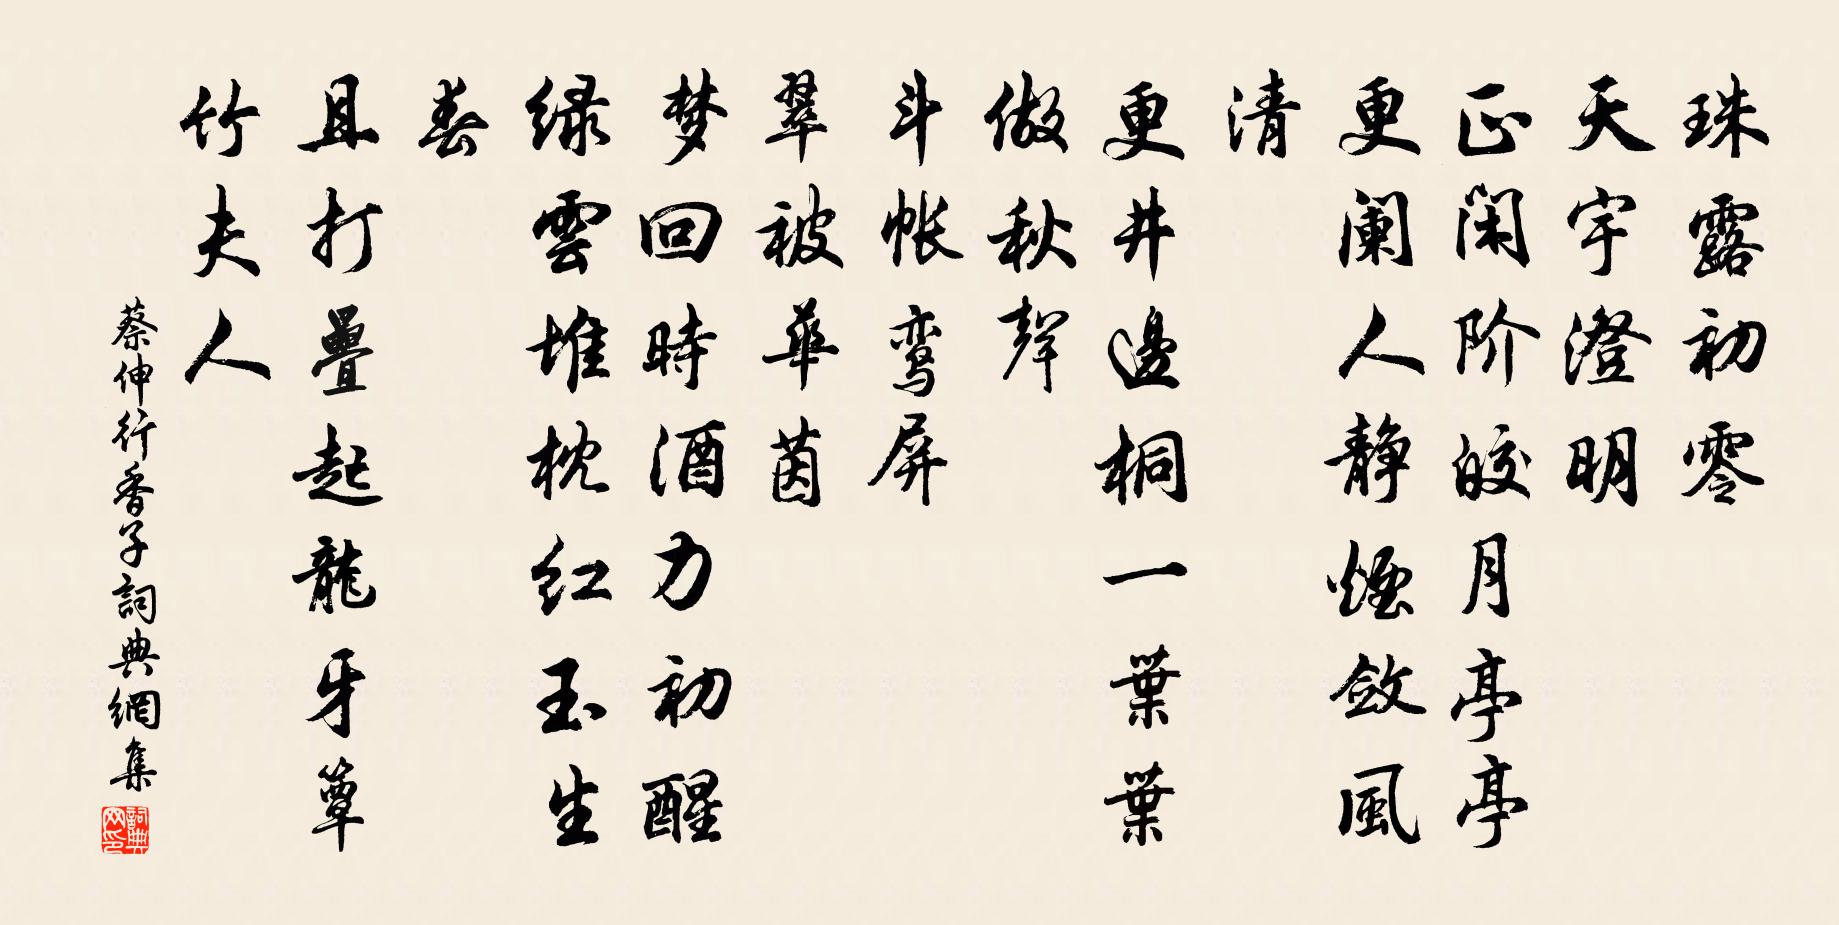 珠露初零
天宇澄明
正闲阶皎月亭亭
更阑人静煙敛風
清
更井邊桐一葉葉
做秋聲
斗帐鸾屏
翠被華茵
梦回時酒力初醒
绿雲堆枕红玉生
春
且打疊起龍牙簟
竹夫人
蔡伸行香子詞典網集
詞典网印